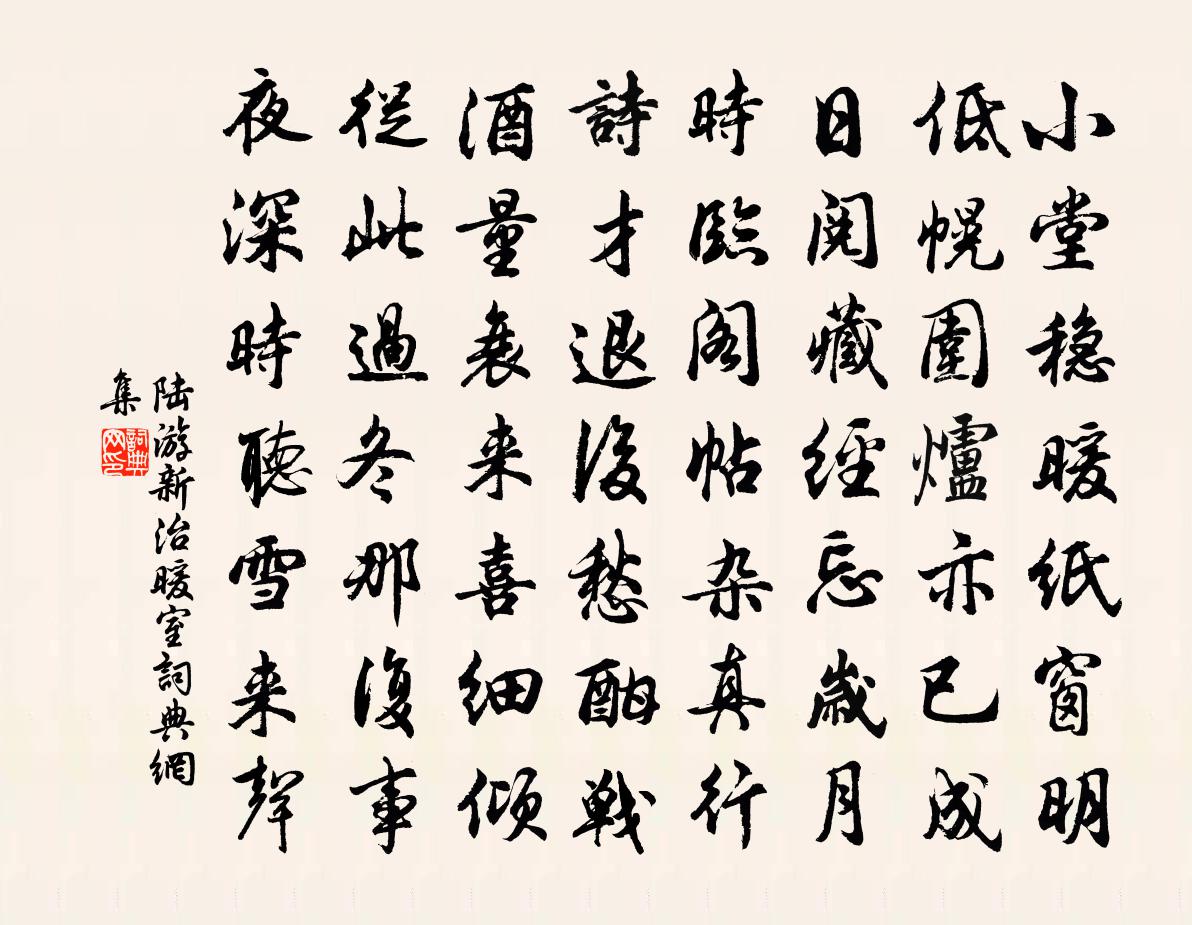 小堂穏暖紙窗明
低幌圍爐亦已成
日閱藏經忘歲月
時臨閣帖杂真行
詩才退後愁酣戦
酒量衰来喜細傾
從此過冬那復事
夜深時聽雪来聲
陆游新治暖室詞典網
集
詞典
网印